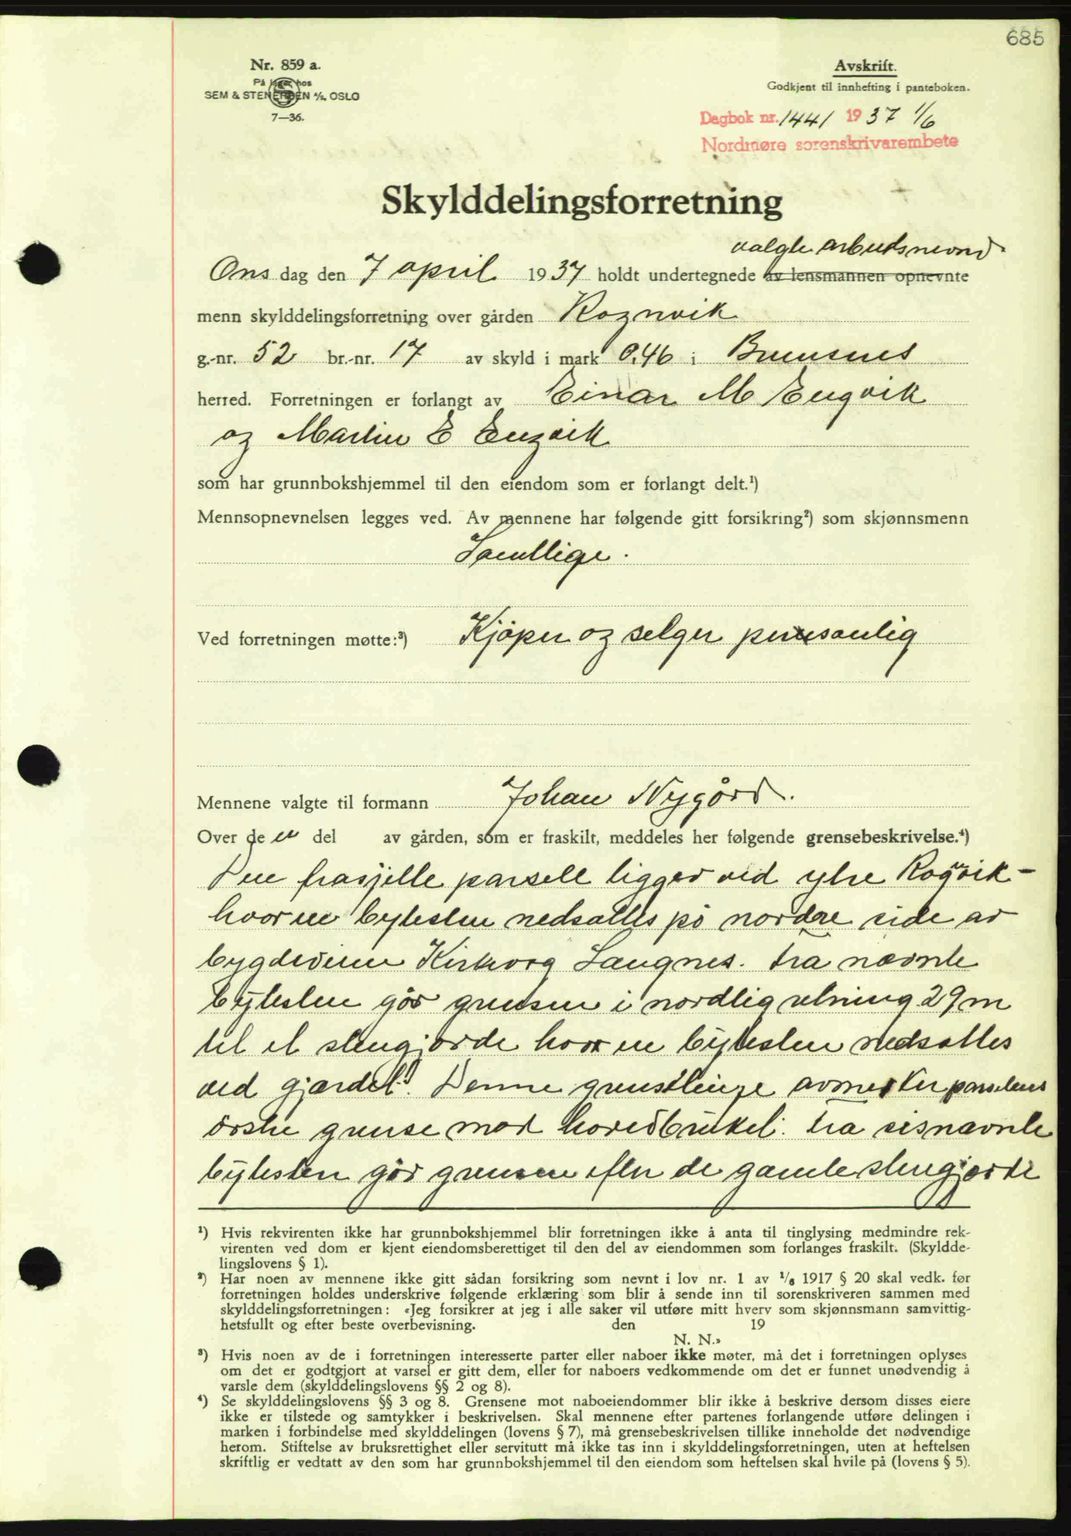 685
Nr. 859 a.
På lager hos
SEM & STENERSEN A/S, OSLO
7—36.
Avskrift.
Godkjent til innhefting i panteboken.
Dagbok nr. 1441 1937 1/6
Nordmøre sorenskrivarembete
Skylddelingsforretning
valgte arbeidsnevnd
Ons dag den 7 april 1937 holdt undertegnede av lensmannen opnevnte
menn skylddelingsforretning over gården Rognvik
g.-nr. 52 br.-nr. 17 av skyld i mark 0,46 i Bremsnes
herred. Forretningen er forlangt av Einar M Engvik
og Martin E Engvik
som har grunnbokshjemmel til den eiendom som er forlangt delt.¹)
Mennsopnevnelsen legges ved. Av mennene har følgende gitt forsikring²) som skjønnsmenn
Samtlige.
Ved forretningen møtte:³) Kjøper og selger personlig
Mennene valgte til formann Johan Nygård.
Over de en del av gården, som er fraskilt, meddeles her følgende grensebeskrivelse.⁴)
Den frasjilte parsell ligger ved ytre Rognvik -
hvor en bytesten nedsattes på nordre side av
bygdeveien Kirkvåg Langnes. Fra nævnte
bytesten går grensen i nordlig retning 29 m
til et stengjærde hvor en bytesten nedsattes
ved gjærdet. Denne grenselinje avmerker parselens
østre grense mot hovedbruket. Fra sisnævnte
bytesten går grensen efter de gamle stengjærde
¹) Hvis rekvirenten ikke har grunnbokshjemmel blir forretningen ikke å anta til tinglysing medmindre rek-
virenten ved dom er kjent eiendomsberettiget til den del av eiendommen som forlanges fraskilt. (Skyldde-
lingslovens § 1).
²) Har noen av mennene ikke gitt sådan forsikring som nevnt i lov nr. 1 av 1/6 1917 § 20 skal vedk. før
forretningen holdes underskrive følgende erklæring som blir å sende inn til sorenskriveren sammen med
skylddelingsforretningen: «Jeg forsikrer at jeg i alle saker vil utføre mitt hverv som skjønnsmann samvittig-
hetsfullt og efter beste overbevisning. den 19
N. N.»
³) Hvis noen av de i forretningen interesserte parter eller naboer ikke møter, må det i forretningen oplyses
om det er godtgjort at varsel er gitt dem, eller for naboers vedkommende om det er funnet unødvendig å
varsle dem (skylddelingslovens §§ 2 og 8).
⁴) Se skylddelingslovens §§ 3 og 8. Grensene mot naboeiendommer blir ikke å beskrive dersom disses eiere
ikke er tilstede og samtykker i beskrivelsen. Skal mennene efter partenes forlangende utføre delingen i
marken i forbindelse med skylddelingen (lovens § 7), må grensebeskrivelsen tillike inneholde det nødvendige
herom. Stiftelse av bruksrettighet eller servitutt må ikke tas inn i skylddelingsforretningen, uten at heftelsen
skriftlig er vedtatt av den som har grunnbokshjemmel til den eiendom som heftelsen skal hvile på (lovens § 5).